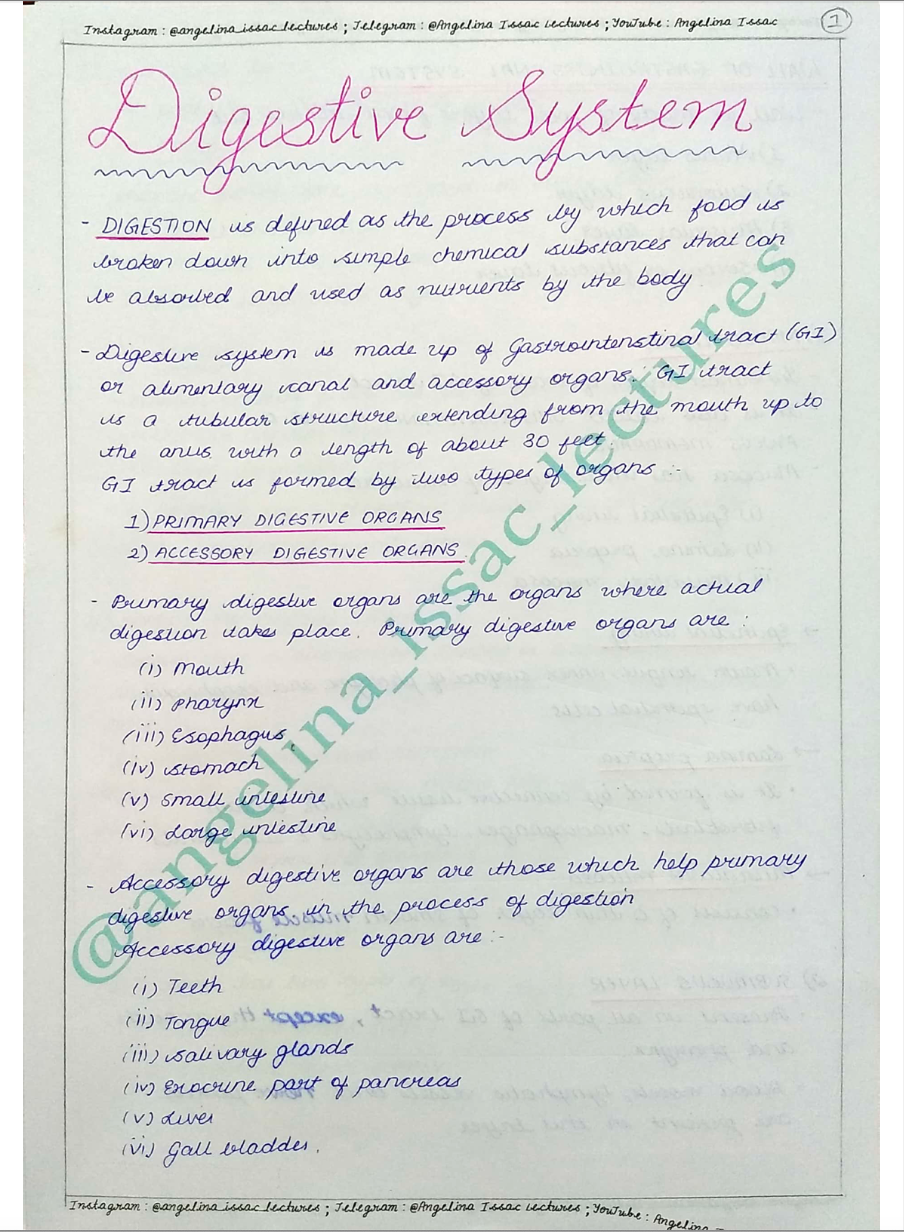 Instagram : @angelina_issac_lectures ; Telegram : @Angelina Issac Lectures ; YouTube : Angelina Issac
1
Digestive System
- DIGESTION is defined as the process by which food is
broken down into simple chemical substances that can
be absorbed and used as nutrients by the body.
- Digestive system is made up of Gastrointenstinal tract (GI)
or alimentary canal and accessory organs. GI tract
is a tubular structure extending from the mouth up to
the anus with a length of about 30 feet.
GI tract is formed by two types of organs :-
1) PRIMARY DIGESTIVE ORGANS
2) ACCESSORY DIGESTIVE ORGANS
- Primary digestive organs are the organs where actual
digestion takes place. Primary digestive organs are :
(i) Mouth
(ii) Pharynx
(iii) Esophagus
(iv) Stomach
(v) Small intestine
(vi) Large intestine
- Accessory digestive organs are those which help primary
digestive organs in the process of digestion
Accessory digestive organs are :-
(i) Teeth
(ii) Tongue
(iii) Salivary glands
(iv) Exocrine part of pancreas
(v) Liver
(vi) Gall bladder.
@angelina_issac_lectures
Instagram : @angelina_issac_lectures ; Telegram : @Angelina Issac Lectures ; YouTube : Angelina